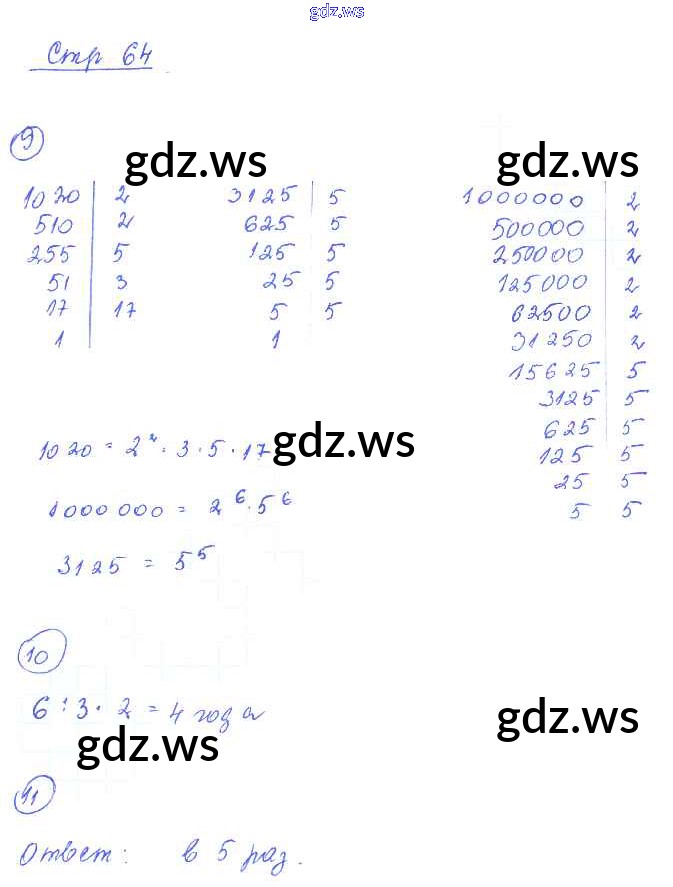 gdz.ws
Стр 64
9
gdz.ws gdz.ws
1020 | 2
510 | 2
255 | 5
51 | 3
17 | 17
1
3125 | 5
625 | 5
125 | 5
25 | 5
5 | 5
1
1000000 | 2
500000 | 2
250000 | 2
125000 | 2
62500 | 2
31250 | 2
15625 | 5
3125 | 5
625 | 5
125 | 5
25 | 5
5 | 5
1020 = 2² · 3 · 5 · 17
gdz.ws
1000000 = 2⁶ · 5⁶
3125 = 5⁵
10
6 : 3 · 2 = 4 года
gdz.ws gdz.ws
11
Ответ: в 5 раз.